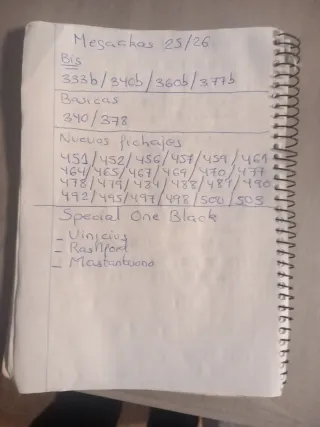 Megacraks 25/26
Bis
333b/340b/360b/377b
Basicas
340/378
Nuevos fichajes
451/452/456/457/459/461
464/465/467/469/470/477
478/479/484/488/489/490
492/495/497/498/500/503
Special One Black
- Vinicius
- Rashford
- Mastantuono